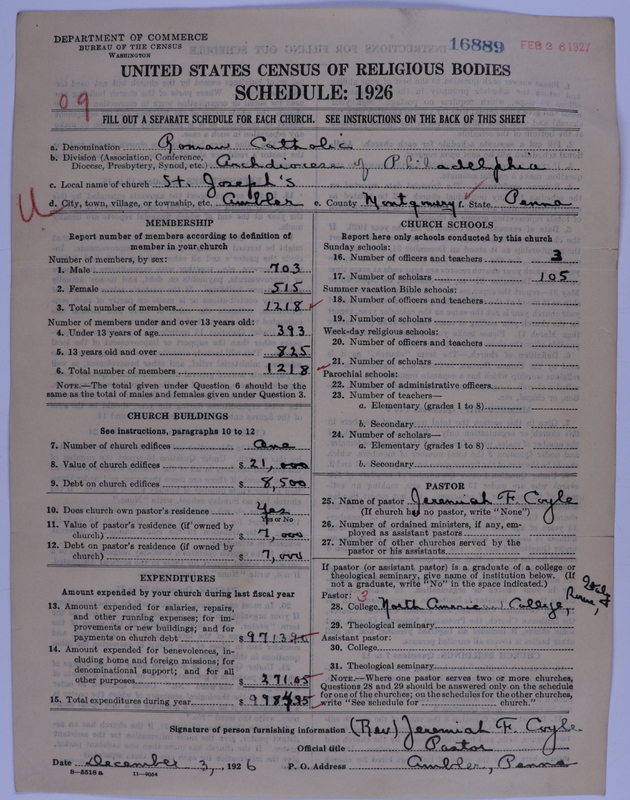 DEPARTMENT OF COMMERCE
BUREAU OF THE CENSUS
WASHINGTON
16889
FEB 26 1927
UNITED STATES CENSUS OF RELIGIOUS BODIES
SCHEDULE: 1926
09
FILL OUT A SEPARATE SCHEDULE FOR EACH CHURCH. SEE INSTRUCTIONS ON THE BACK OF THIS SHEET
a. Denomination Roman Catholic
b. Division (Association, Conference, Diocese, Presbytery, Synod, etc.) Archdiocese of Philadelphia
c. Local name of church St. Joseph's
d. City, town, village, or township, etc. Ambler e. County Montgomery f. State Penna
MEMBERSHIP
Report number of members according to definition of
member in your church
Number of members, by sex:
1. Male 703
2. Female 515
3. Total number of members 1218
Number of members under and over 13 years old:
4. Under 13 years of age 393
5. 13 years old and over 825
6. Total number of members 1218
NOTE.—The total given under Question 6 should be the
same as the total of males and females given under Question 3.
CHURCH BUILDINGS
See instructions, paragraphs 10 to 12
7. Number of church edifices One
8. Value of church edifices $ 21,000
9. Debt on church edifices $ 8,500
10. Does church own pastor's residence Yes
Yes or No
11. Value of pastor's residence (if owned by
church) $ 7,000
12. Debt on pastor's residence (if owned by
church) $ 7,000
EXPENDITURES
Amount expended by your church during last fiscal year
13. Amount expended for salaries, repairs,
and other running expenses; for im-
provements or new buildings; and for
payments on church debt $
14. Amount expended for benevolences, in-
cluding home and foreign missions; for
denominational support; and for all
other purposes $ 271.05
15. Total expenditures during year $
CHURCH SCHOOLS
Report here only schools conducted by this church
Sunday schools:
16. Number of officers and teachers 3
17. Number of scholars 105
Summer vacation Bible schools:
18. Number of officers and teachers
19. Number of scholars
Week-day religious schools:
20. Number of officers and teachers
21. Number of scholars
Parochial schools:
22. Number of administrative officers
23. Number of teachers—
a. Elementary (grades 1 to 8)
b. Secondary
24. Number of scholars—
a. Elementary (grades 1 to 8)
b. Secondary
PASTOR
25. Name of pastor Jeremiah F. Coyle
(If church has no pastor, write "None")
26. Number of ordained ministers, if any, em-
ployed as assistant pastors
27. Number of other churches served by the
pastor or his assistants
If pastor (or assistant pastor) is a graduate of a college or
theological seminary, give name of institution below. (If
not a graduate, write "No" in the space indicated.)
Pastor: 3
28. College North American College, Rome, Italy
29. Theological seminary
Assistant pastor:
30. College
31. Theological seminary
NOTE.—Where one pastor serves two or more churches,
Questions 28 and 29 should be answered only on the schedule
for one of the churches; on the schedules for the other churches,
write "See schedule for church."
Signature of person furnishing information (Rev) Jeremiah F. Coyle
Official title Pastor
Date December 3, 1926 P. O. Address Ambler, Penna
8—5518a 11—9054